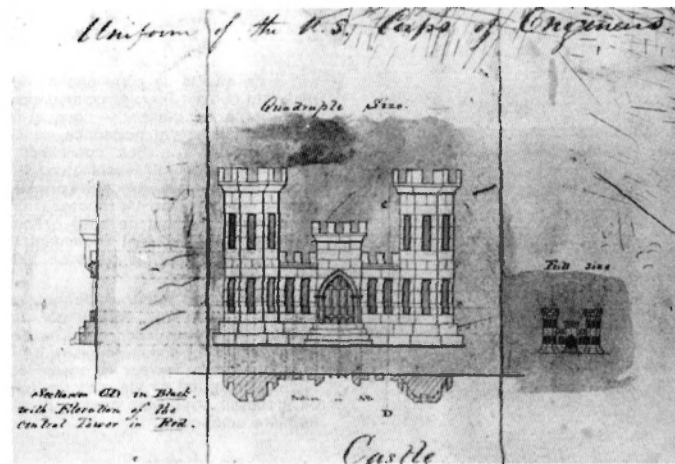 Uniform of the U.S. Corps of Engineers.
Quadruple Size.
C
Full Size
Section on CD in Black.
with Elevation of the
central Tower in Red.
Section on
D
Castle